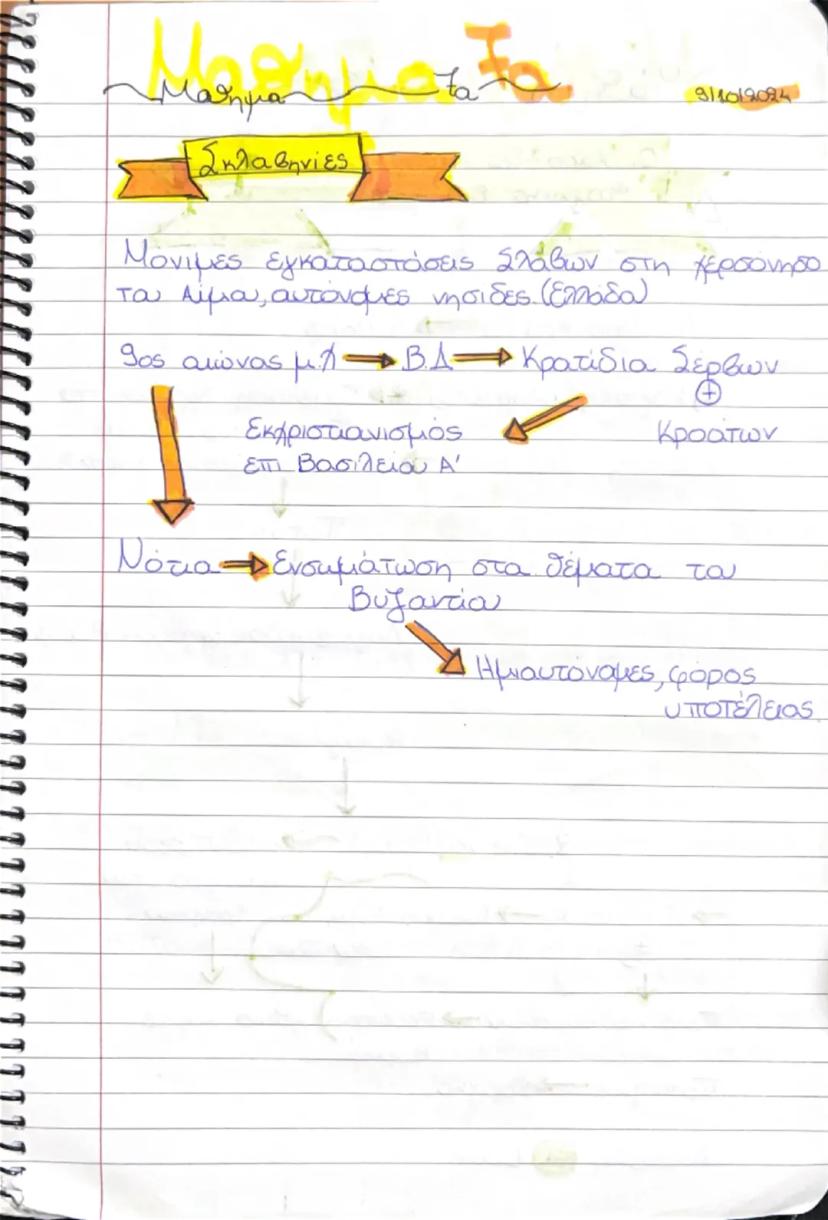 Μαθημα 7α
Μαθημα 7α 9/10/2024
Σκλαβηνίες
Μόνιμες εγκαταστάσεις Σλάβων στη χερσόνησο
του Αίμου, αυτόνομες νησίδες (Ελλάδα)
9ος αιώνας μ.Χ → Β.Δ → Κρατίδια Σέρβων
+
Εκχριστιανισμός Κροατών
επι Βασιλείου Α'
Νότια → Ενσωμάτωση στα θέματα του
Βυζαντίου
Ημιαυτόνομες, φόρος
υποτέλειας